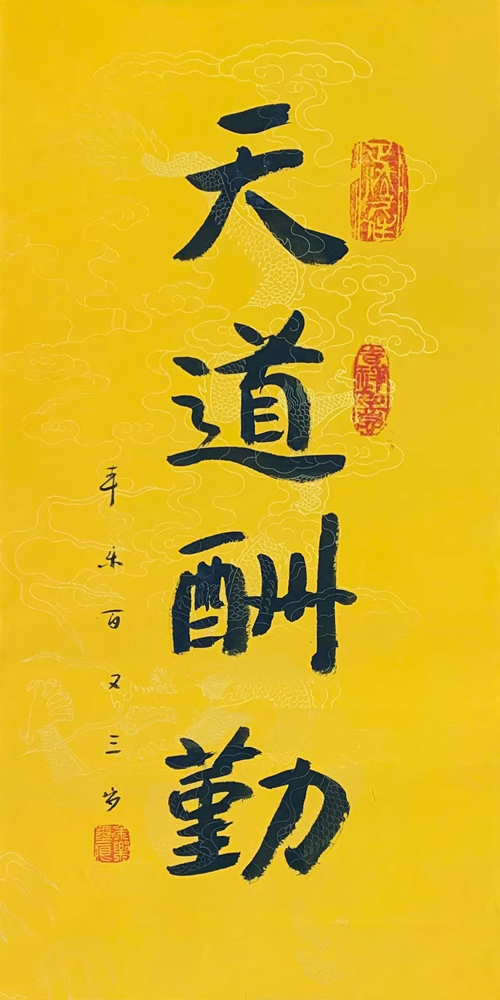 天道酬勤
乐百又三岁